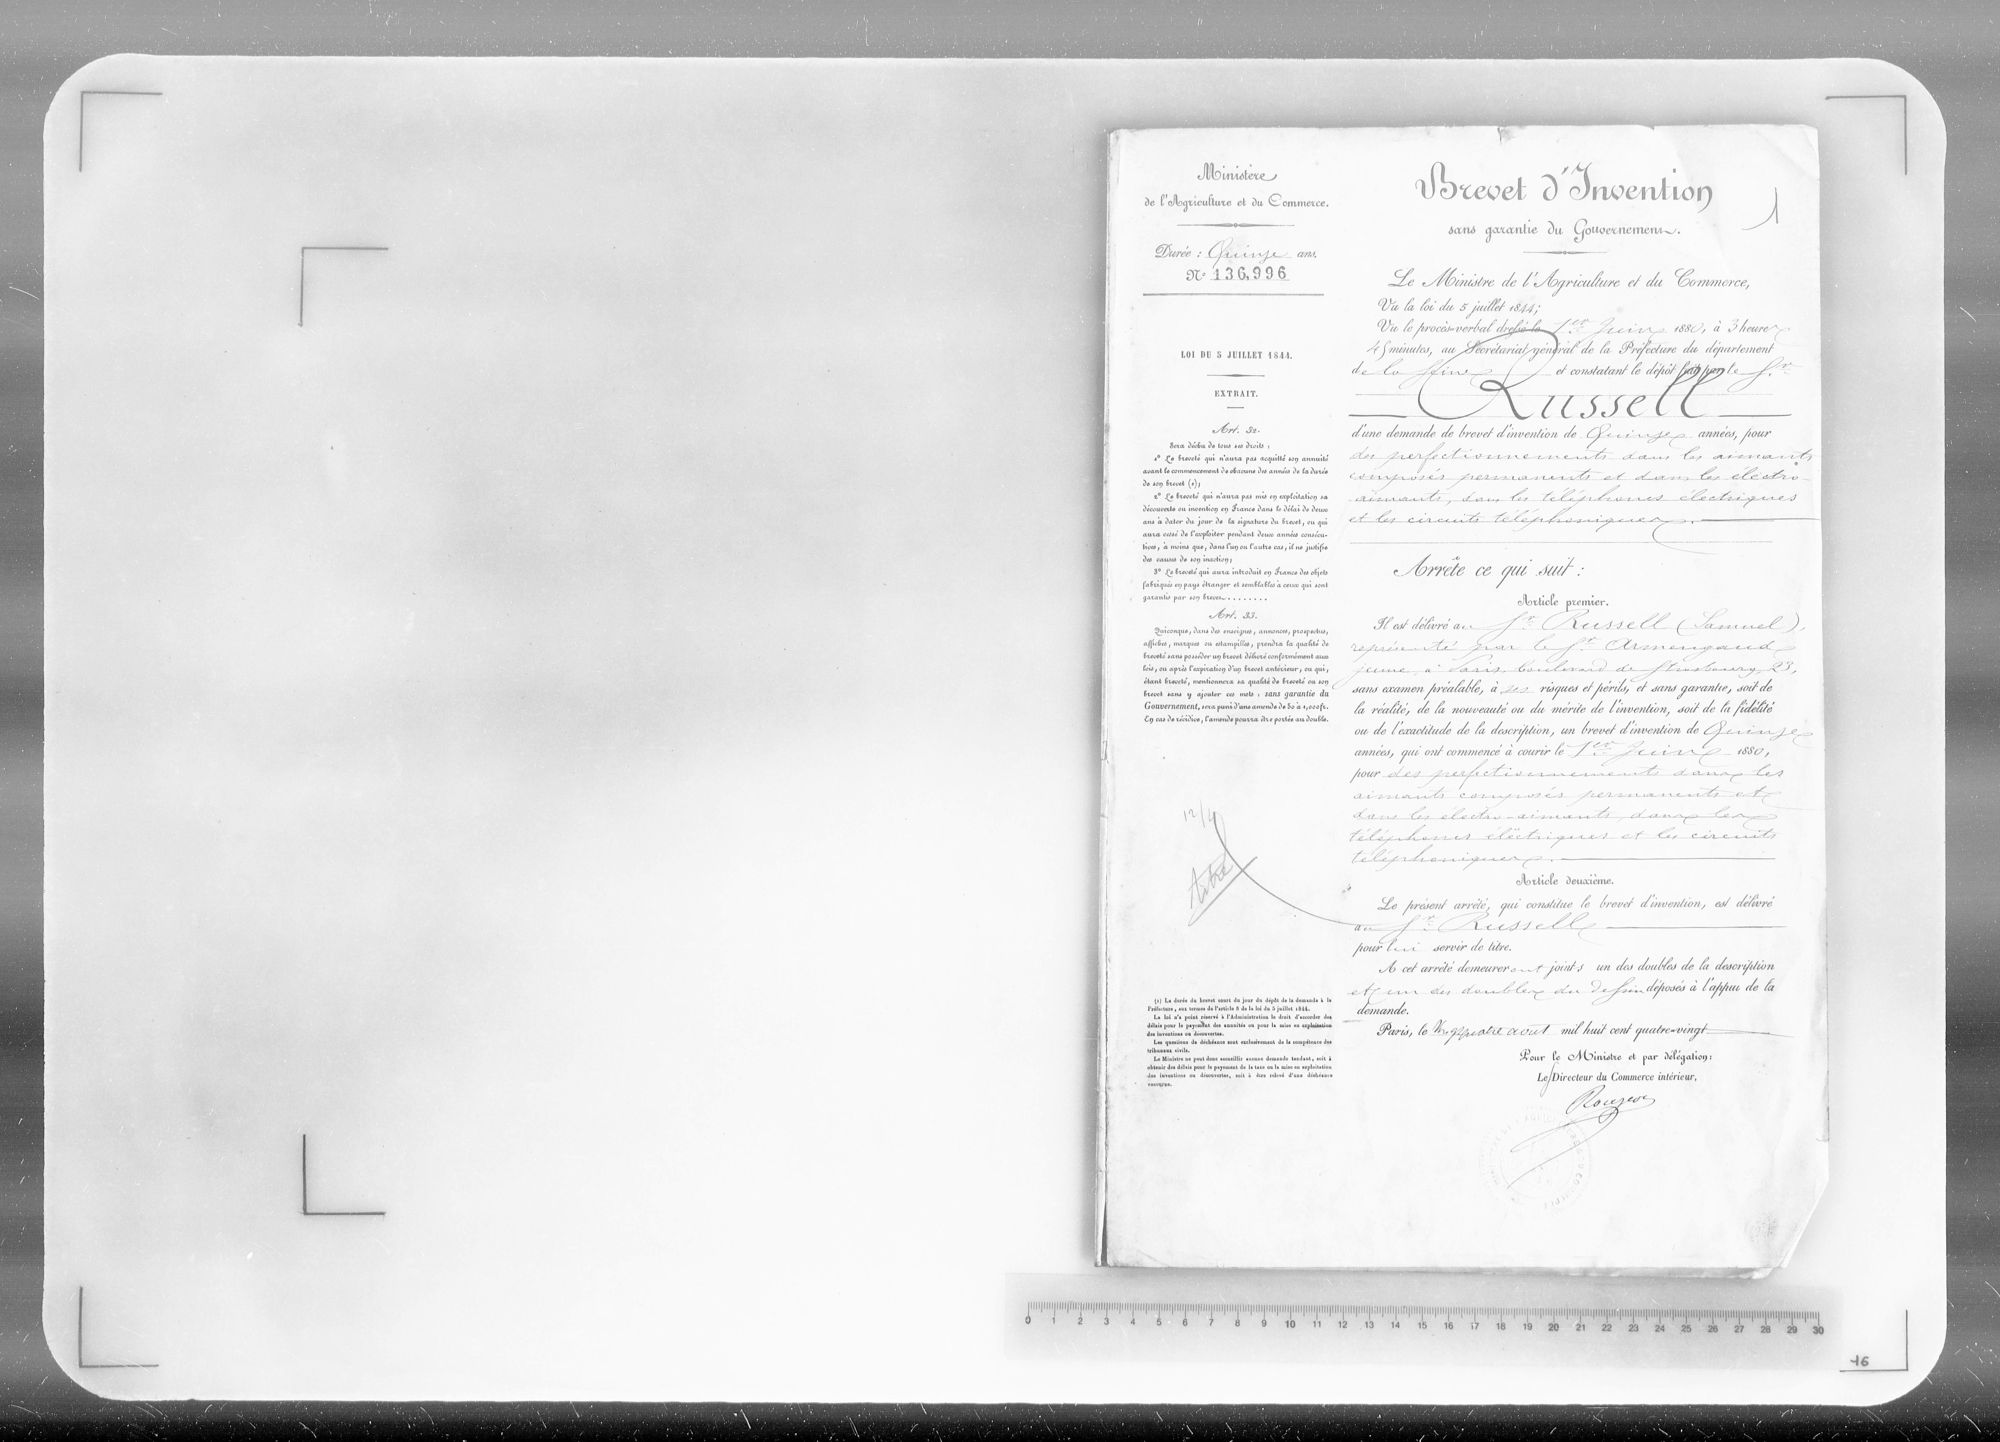 Ministère
de l'Agriculture et du Commerce.
Durée : Quinze ans.
N° 136,996
LOI DU 5 JUILLET 1844.
EXTRAIT.
Art. 32.
Sera déchu de tous ses droits :
1° Le breveté qui n'aura pas acquitté son annuité
avant le commencement de chacune des années de la durée
de son brevet (1);
2° Le breveté qui n'aura pas mis en exploitation sa
découverte ou invention en France dans le délai de deux
ans à dater du jour de la signature du brevet, ou qui
aura cessé de l'exploiter pendant deux années consécu-
tives, à moins que, dans l'un ou l'autre cas, il ne justifie
des causes de son inaction;
3° Le breveté qui aura introduit en France des objets
fabriqués en pays étranger et semblables à ceux qui sont
garantis par son brevet.........
Art. 33.
Quiconque, dans des enseignes, annonces, prospectus,
affiches, marques ou estampilles, prendra la qualité de
breveté sans posséder un brevet délivré conformément aux
lois, ou après l'expiration d'un brevet antérieur, ou qui,
étant breveté, mentionnera sa qualité de breveté ou son
brevet sans y ajouter ces mots : sans garantie du
Gouvernement, sera puni d'une amende de 50 à 1,000 fr.
En cas de récidive, l'amende pourra être portée au double.
12/4
titre
(1) La durée du brevet court du jour du dépôt de la demande à la
Préfecture, aux termes de l'article 8 de la loi du 5 juillet 1844.
La loi n'a point réservé à l'Administration le droit d'accorder des
délais pour le payement des annuités ou pour la mise en exploitation
des inventions ou découvertes.
Les questions de déchéance sont exclusivement de la compétence des
tribunaux civils.
Le Ministre ne peut donc accueillir aucune demande tendant, soit à
obtenir des délais pour le payement de la taxe ou la mise en exploitation
des inventions ou découvertes, soit à être relevé d'une déchéance
encourue.
Brevet d'Invention
1
sans garantie du Gouvernement.
Le Ministre de l'Agriculture et du Commerce,
Vu la loi du 5 juillet 1844;
Vu le procès-verbal dressé le 1er Juin 1880, à 3 heures
45 minutes, au Secrétariat général de la Préfecture du département
de la Seine et constatant le dépôt fait par le Sr
Russell
d'une demande de brevet d'invention de Quinze années, pour
des perfectionnements dans les aimants
composés permanents et dans les électro-
aimants, dans les téléphones électriques
et les circuits téléphoniques.
Arrête ce qui suit :
Article premier.
Il est délivré au Sr Russell (Samuel),
représenté par le Sr Armengaud
jeune, à Paris, boulevard de Strasbourg, 23,
sans examen préalable, à ses risques et périls, et sans garantie, soit de
la réalité, de la nouveauté ou du mérite de l'invention, soit de la fidélité
ou de l'exactitude de la description, un brevet d'invention de Quinze
années, qui ont commencé à courir le 1er Juin 1880,
pour des perfectionnements dans les
aimants composés permanents et
dans les électro-aimants, dans les
téléphones électriques et les circuits
téléphoniques.
Article deuxième.
Le présent arrêté, qui constitue le brevet d'invention, est délivré
au Sr Russell
pour lui servir de titre.
A cet arrêté demeureront joints un des doubles de la description
et un des doubles du dessin déposés à l'appui de la
demande.
Paris, le vingt quatre août mil huit cent quatre-vingt
Pour le Ministre et par délégation:
Le Directeur du Commerce intérieur,
0 1 2 3 4 5 6 7 8 9 10 11 12 13 14 15 16 17 18 19 20 21 22 23 24 25 26 27 28 29 30
16